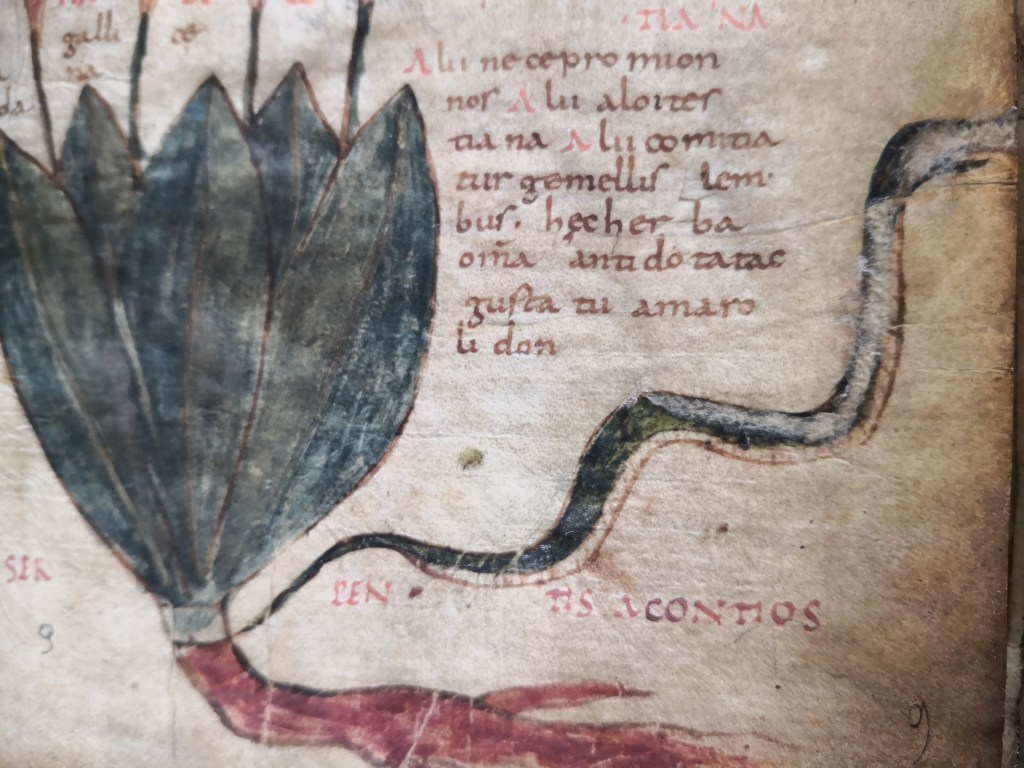 galli ce
na
da
TIA NA
Alii ne cepro mion
nos Alii aloites
tia na Alii comitia
tur gemellis lem·
bus. hecher ba
om̄a antidotatas
gusta tu amaro
li don
SER PEN TIS ACONTIOS
9
9